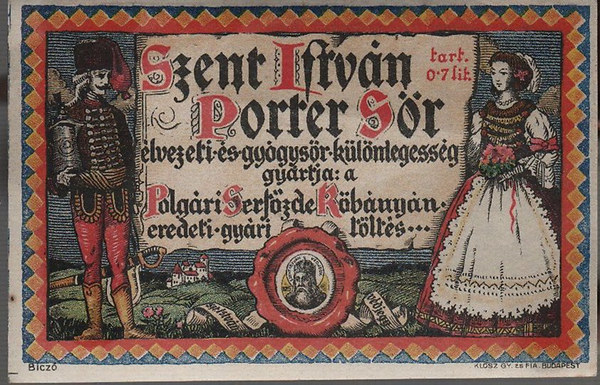 Szent István
tart.
0·7 lit.
Porter Sör
élvezeti-és-gyógysör-különlegesség
gyártja: a
Polgári Serfőzde Kőbányán·
eredeti·gyári töltés...
Biczó
KLÖSZ GY. ÉS FIA. BUDAPEST